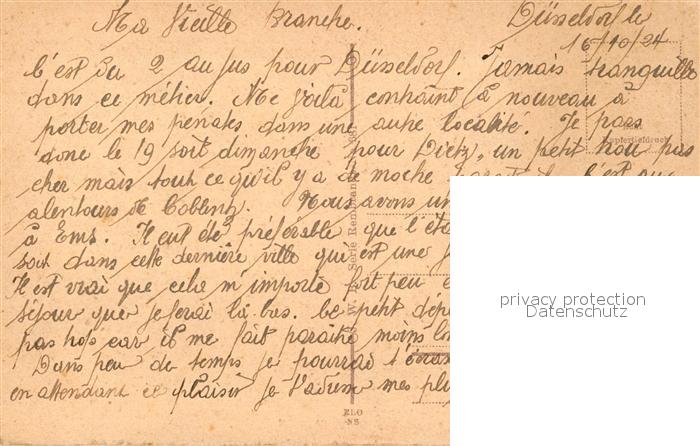 Ma Vieille Branche. Düsseldorf le
16/10/24
C'est du 2 au jus pour Düsseldorf. Jamais tranquille
dans ce métier. Me voilà contraint à nouveau à
porter mes pénates dans une autre localité. Je pars
donc le 19 soit dimanche pour Dietz, un petit trou pas
cher mais tout ce qu'il y a de moche
alentours de Coblenz. Nous avons un
à Ems. Il eut été préférable que l'éta
soit dans cette dernière ville qui est une
Il est vrai que cela m'importe fort peu
séjour que je ferai là-bas. Ce petit dépa
pas trop car il me fait paraître moins lo
Dans peu de temps je pourrai t'écras
en attendant ce plaisir je t'adresse mes plu
W. Série Rembrand
ELO
NS
privacy protection
Datenschutz